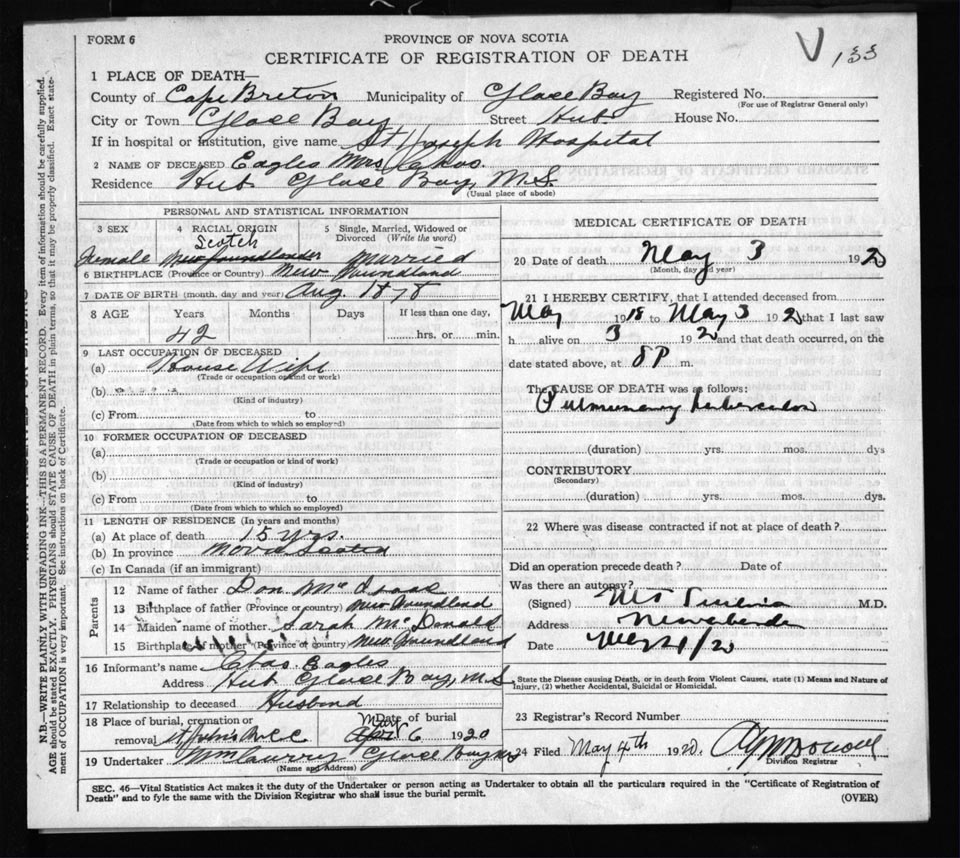 FORM 6
PROVINCE OF NOVA SCOTIA
CERTIFICATE OF REGISTRATION OF DEATH
V 133
1 PLACE OF DEATH—
County of Cape Breton Municipality of Glace Bay Registered No.
(For use of Registrar General only)
City or Town Glace Bay Street Hub. House No.
If in hospital or institution, give name St Joseph Hospital
2 NAME OF DECEASED Eagles Mrs Chas.
Residence Hub Glace Bay, N.S.
(Usual place of abode)
PERSONAL AND STATISTICAL INFORMATION
3 SEX 4 RACIAL ORIGIN 5 Single, Married, Widowed or Divorced (Write the word)
Scotch
Female Newfoundlander Married
6 BIRTHPLACE (Province or Country) New Foundland
7 DATE OF BIRTH (month, day and year) Aug. 1878
8 AGE Years Months Days If less than one day,
42 hrs. or min.
9 LAST OCCUPATION OF DECEASED
(a) House Wife
(Trade or occupation or kind of work)
(b)
(Kind of industry)
(c) From to
(Date from which to which so employed)
10 FORMER OCCUPATION OF DECEASED
(a)
(Trade or occupation or kind of work)
(b)
(Kind of industry)
(c) From to
(Date from which to which so employed)
11 LENGTH OF RESIDENCE (In years and months)
(a) At place of death 15 yrs.
(b) In province Nova Scotia
(c) In Canada (if an immigrant)
Parents
12 Name of father Don Mc Isaac
13 Birthplace of father (Province or country) New Foundland
14 Maiden name of mother Sarah McDonald
15 Birthplace of mother (Province or country) New Foundland
16 Informant's name Chas. Eagles
Address Hub Glace Bay, N.S.
17 Relationship to deceased Husband
18 Place of burial, cremation or removal St John's Date of burial May April 6 1920
19 Undertaker Glace Bay NS
(Name and Address)
MEDICAL CERTIFICATE OF DEATH
20 Date of death May 3 1920
(Month, day and year)
21 I HEREBY CERTIFY, that I attended deceased from
May 1918 to May 3 1920 that I last saw
h alive on 3 1920 and that death occurred, on the
date stated above, at 8P m.
The CAUSE OF DEATH was as follows:
Pulmonary Tuberculosis
(duration) yrs. mos. dys
CONTRIBUTORY
(Secondary)
(duration) yrs. mos. dys.
22 Where was disease contracted if not at place of death?
Did an operation precede death? Date of
Was there an autopsy?
(Signed) M.D.
Address New Aberdeen
Date May 4/20
State the Disease causing Death, or in death from Violent Causes, state (1) Means and Nature of
Injury, (2) whether Accidental, Suicidal or Homicidal.
23 Registrar's Record Number
24 Filed May 4th 1920.
Division Registrar
SEC. 46—Vital Statistics Act makes it the duty of the Undertaker or person acting as Undertaker to obtain all the particulars required in the "Certificate of Registration of
Death" and to fyle the same with the Division Registrar who shall issue the burial permit.
(OVER)
N.B.—WRITE PLAINLY WITH UNFADING INK—THIS IS A PERMANENT RECORD. Every item of information should be carefully supplied.
AGE should be stated EXACTLY. PHYSICIANS should STATE CAUSE OF DEATH in plain terms, so that it may be properly classified. Exact statement of OCCUPATION is very important. See instructions on back of Certificate.